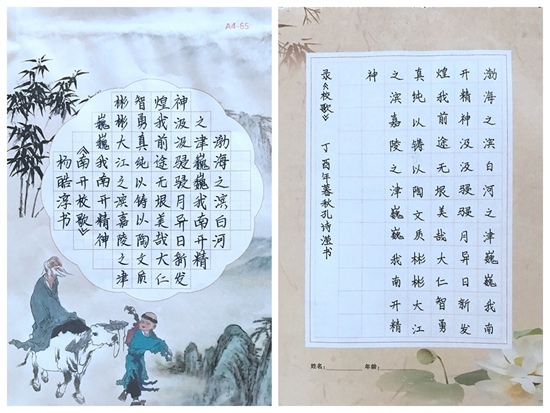 A4-65
渤海之滨白河
之津巍巍我南开精
神汲汲骎骎月异日新发
煌我前途无垠美哉大仁
智勇真纯以铸以陶文质
彬彬大江之滨嘉陵之津
巍巍我南开精神
《南开校歌》
杨淳书
渤海之滨白河之津巍巍我南
开精神汲汲骎骎月异日新发
煌我前途无垠美哉大仁智勇
真纯以铸以陶文质彬彬大江
之滨嘉陵之津巍巍我南开精
神
录《校歌》 丁酉年暮秋孔诗滢书
姓名：________ 年龄：________